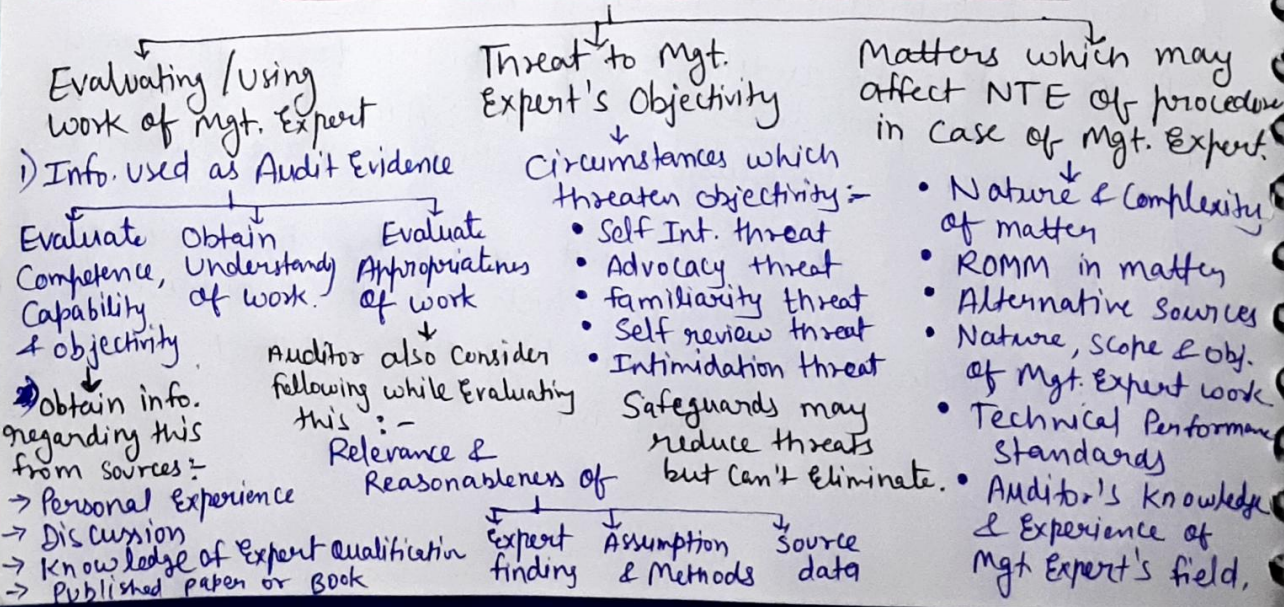 Evaluating / Using
work of Mgt. Expert
i) Info. used as Audit Evidence
Evaluate
Competence,
Capability
& objectivity
Obtain info.
regarding this
from sources:-
→ Personal Experience
→ Discussion
→ Knowledge of Expert Qualification
→ Published paper or Book
Obtain
Understandg
of work.
Evaluate
Appropriatines
of work
Auditor also Consider
following while Evaluating
this :-
Relevance &
Reasonableness of
Expert
finding
Assumption
& Methods
Source
data
Threat to Mgt.
Expert's Objectivity
Circumstances which
threaten objectivity:-
• Self Int. threat
• Advocacy threat
• familiarity threat
• Self review threat
• Intimidation threat
Safeguards may
reduce threats
but Can't Eliminate.
Matters which may
affect NTE of procedure
in Case of Mgt. Expert.
• Nature & Complexity
of matter
• ROMM in matter
• Alternative Sources
• Nature, Scope & Obj.
of Mgt. Expert work
• Technical Performan
Standards
• Auditor's Knowledge
& Experience of
Mgt Expert's field,